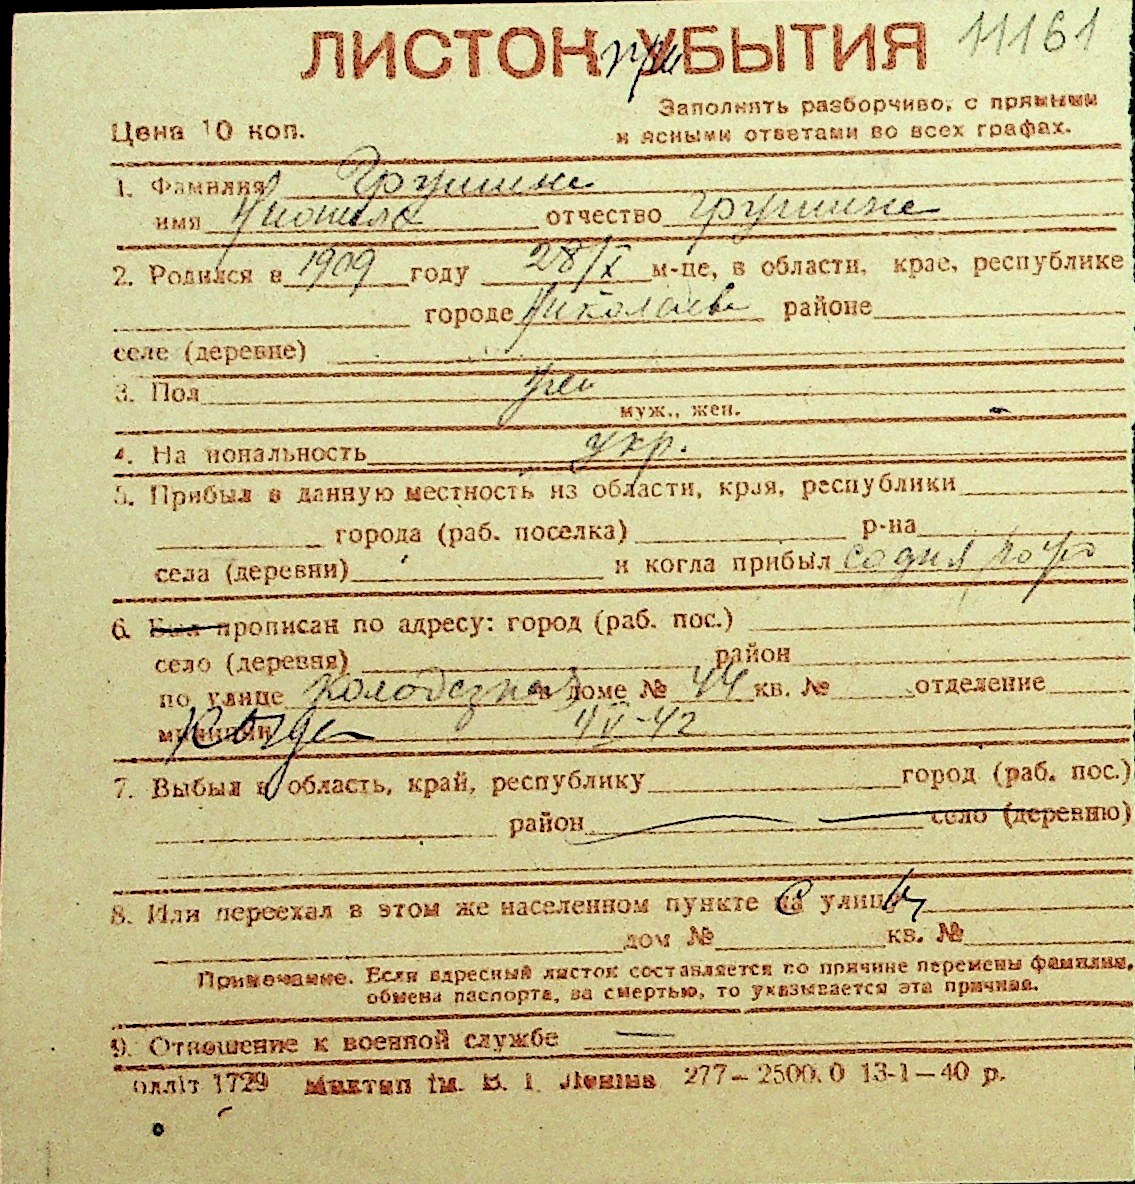 ЛИСТОК при УБЫТИЯ 11161
Заполнять разборчиво, с прямыми
Цена 10 коп. и ясными ответами во всех графах.
1. Фамилия
имя отчество
2. Родился в 1909 году 28/X м-це, в области, крае, республике
городе Николаев районе
селе (деревне)
3. Пол жен
муж., жен.
4. На иональность укр.
5. Прибыл в данную местность из области, края, республики
города (раб. поселка) р-на
села (деревни) и когда прибыл
6. Был прописан по адресу: город (раб. пос.)
село (деревня) район
по улице Колодезная в доме № 44 кв. № отделение
милиции 4 V-42
7. Выбыл в область, край, республику город (раб. пос.)
район село (деревню)
8. Или переехал в этом же населенном пункте на улицу
дом № кв. №
Примечание. Если адресный листок составляется по причине перемены фамилии,
обмена паспорта, за смертью, то указывается эта причина.
9. Отношение к военной службе —
олліт 1729 Миктип ім. В. І. Леніна 277—2500.0 13-1—40 р.